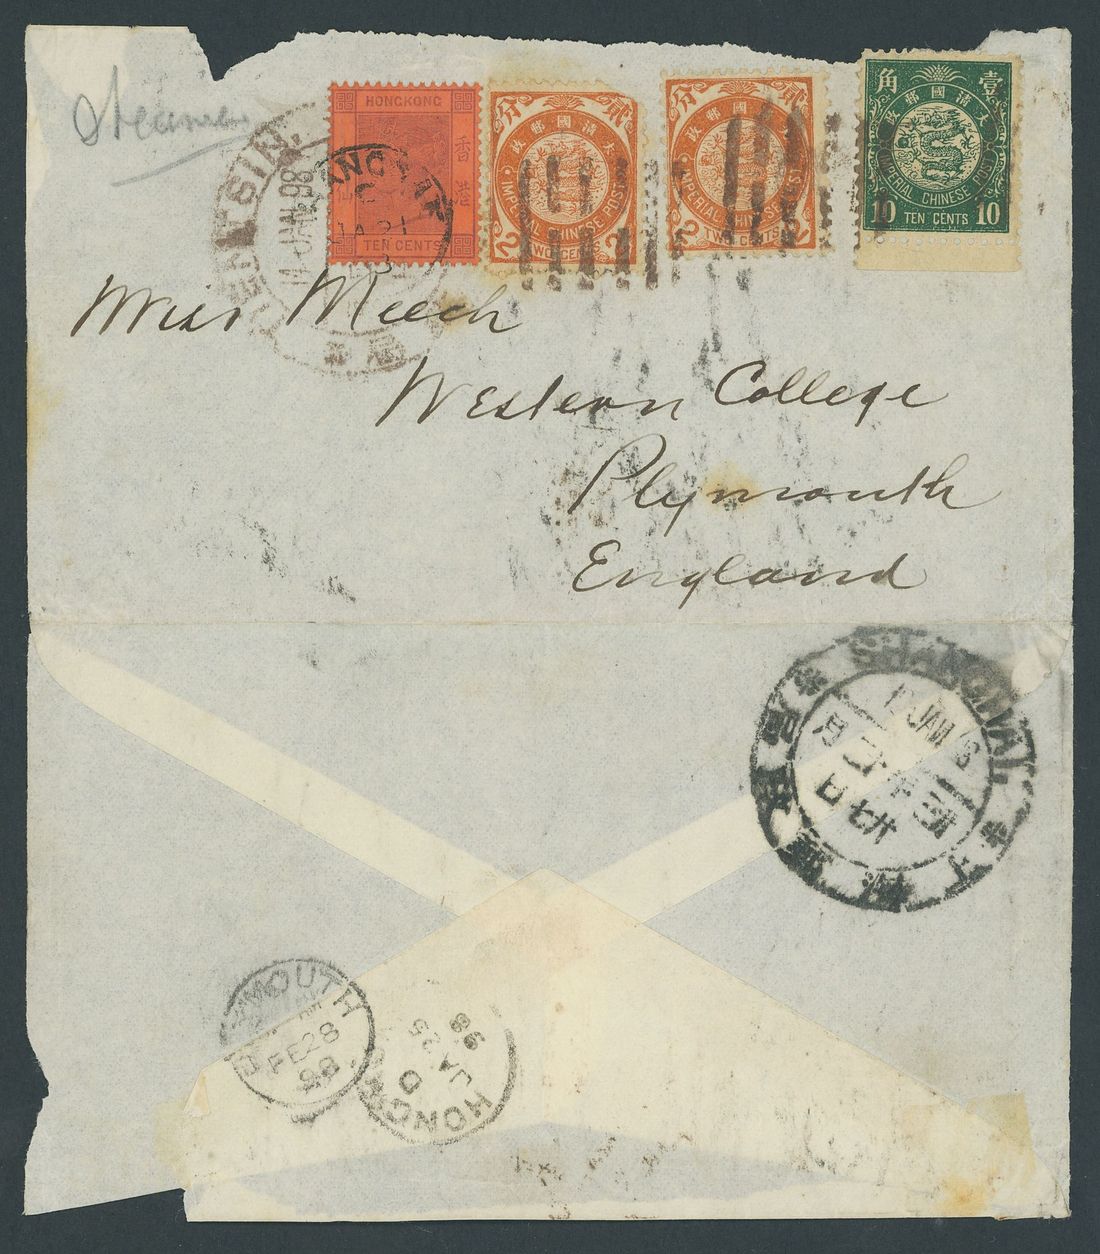 Steamer
HONGKONG
香港
TEN CENTS
貳分
大清國郵政
IMPERIAL CHINESE POST
2 TWO CENTS 2
貳分
大清國郵政
IMPERIAL CHINESE POST
2 TWO CENTS 2
壹角
大清國郵政
IMPERIAL CHINESE POST
10 TEN CENTS 10
TIENTSIN
14 JAN 98
SHANGHAI
C
JA 21
Miss Meech
Western College
Plymouth
England
SHANGHAI
JAN
PLYMOUTH
FE 28
98
HONG K
D
JA 25
98